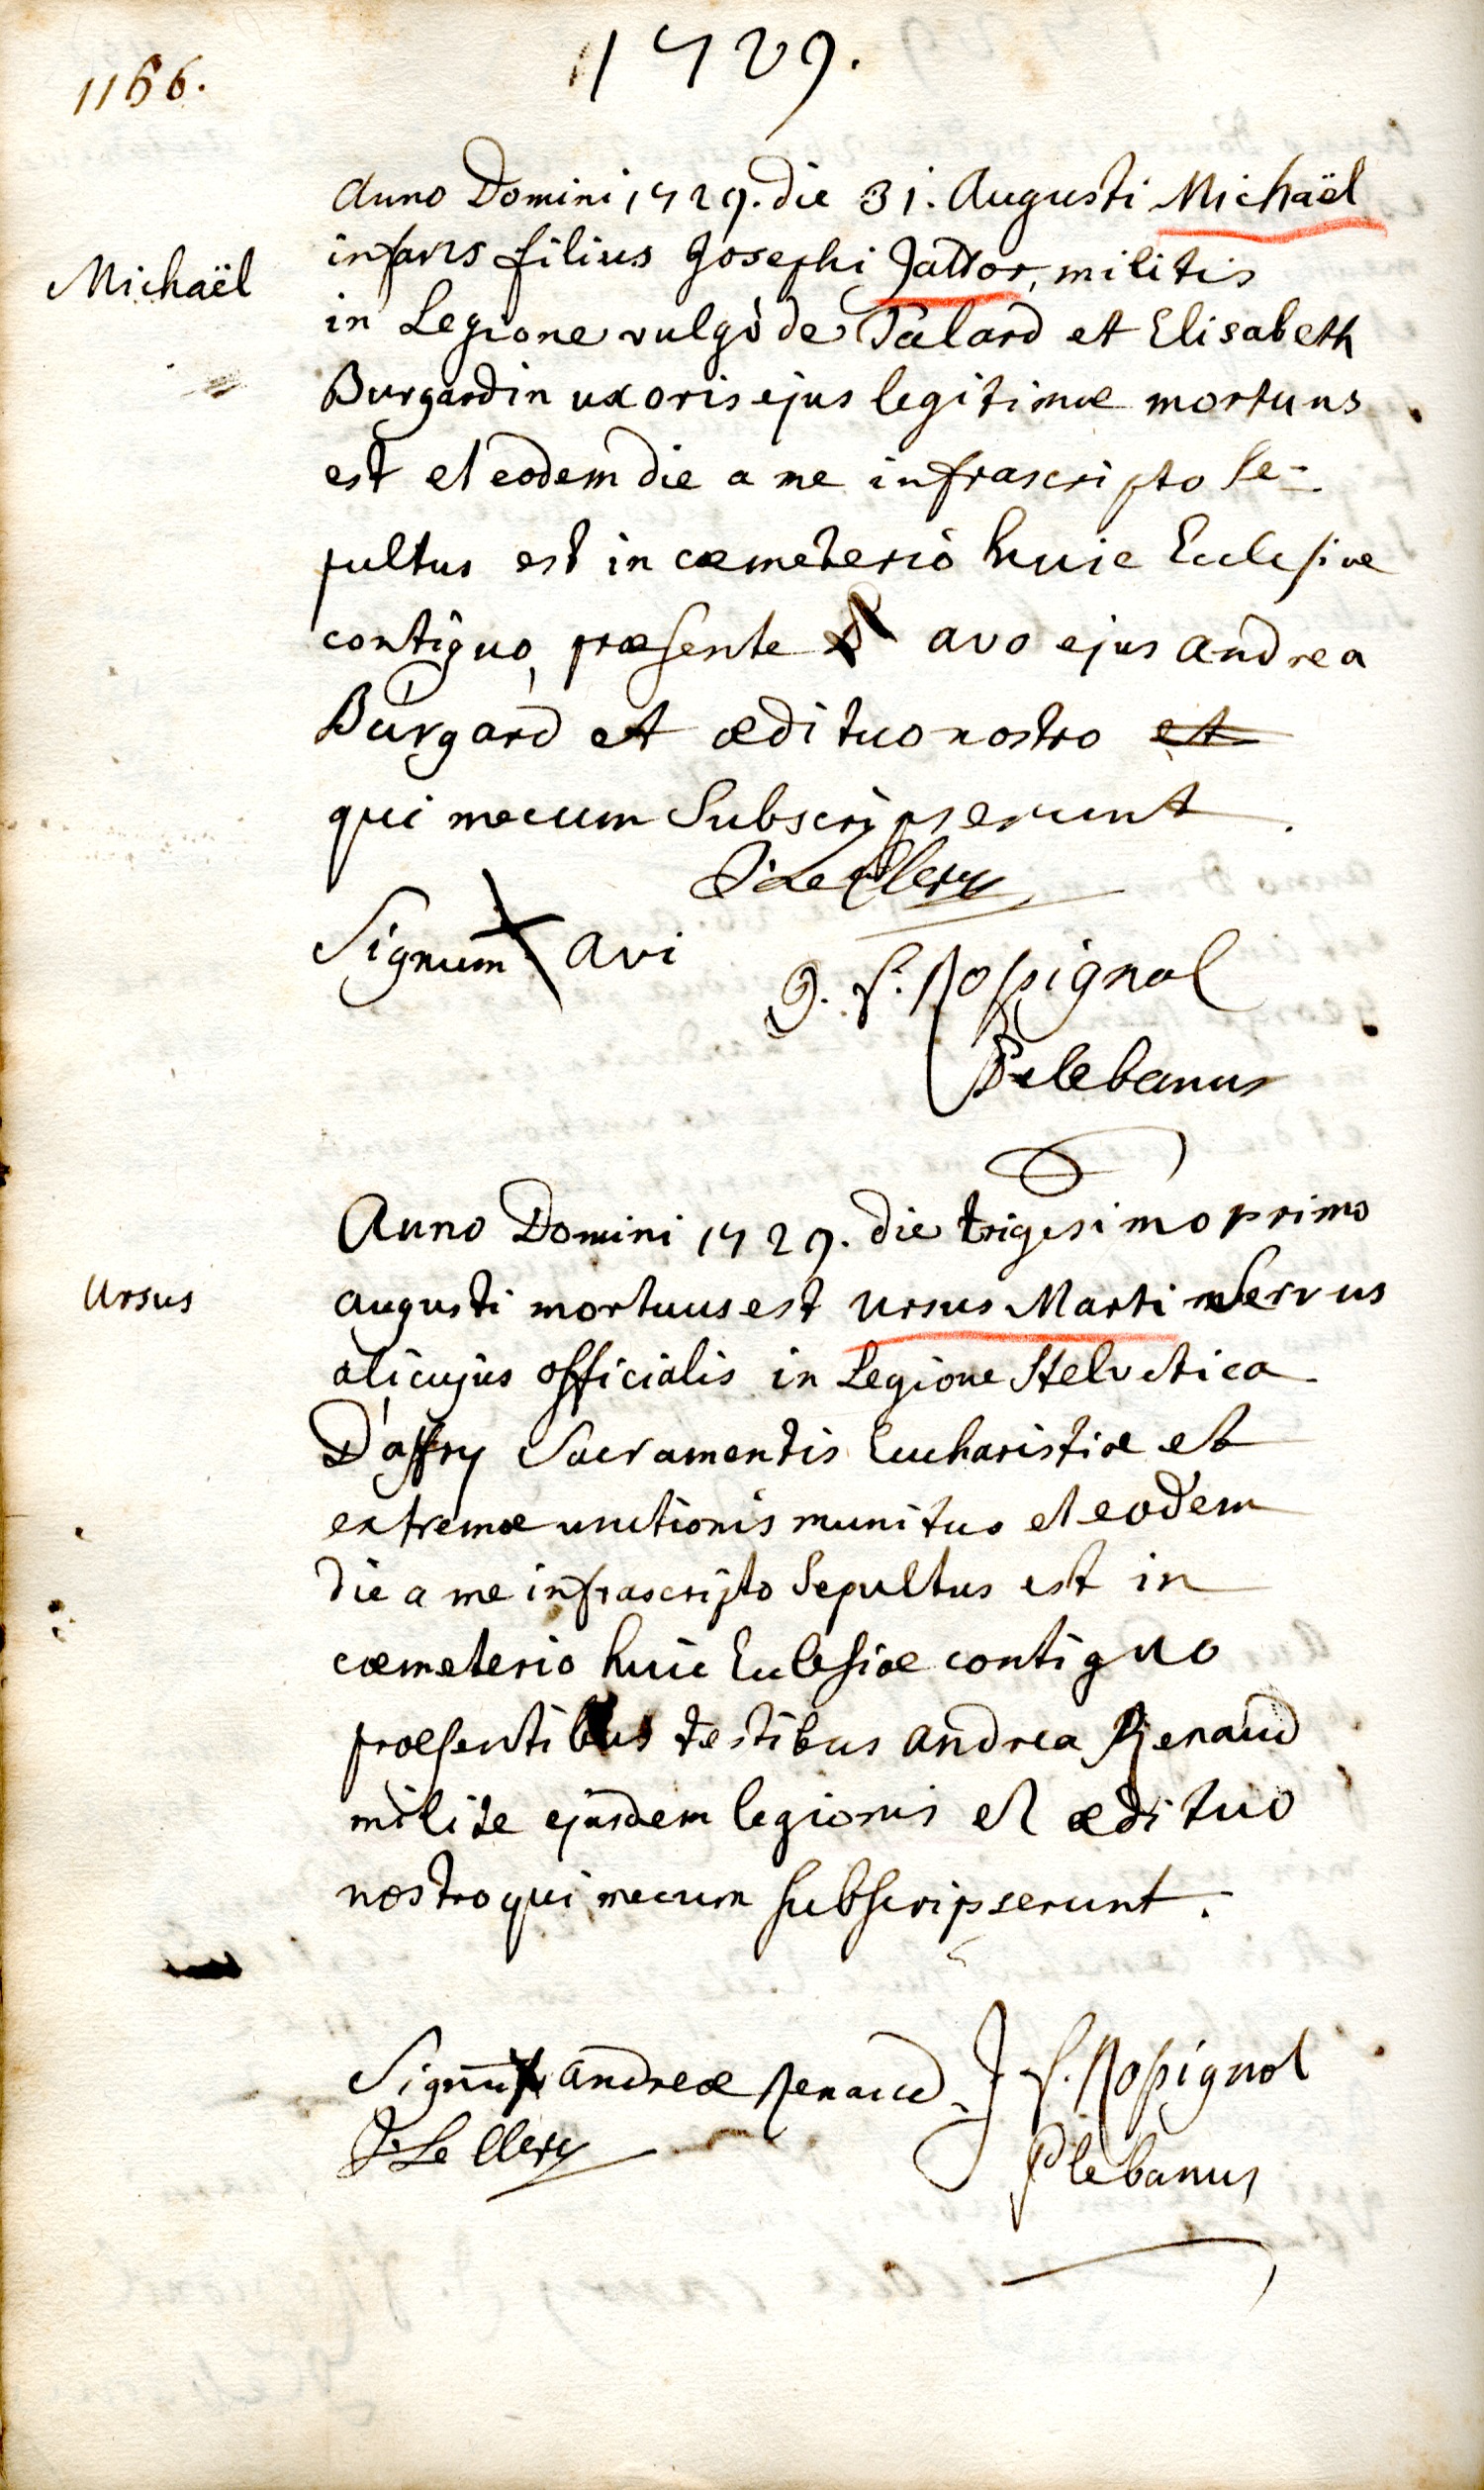 1166.
1729.
Anno Domini 1729. die 31. Augusti Michaël
Michaël
infans filius Josephi Jattor, militis
in Legione vulgò de Talard et Elisabeth
Burgardin uxoris ejus legitimæ mortuus
est et eodem die a me infrascripto Se-
pultus est in cæmeterio huic Ecclesiæ
contiguo, præsente avo ejus andrea
Burgard et ædituo nostro et
qui mecum Subscripserunt.
J Le Clery
Signum X avi
J. f. Rossignol
Plebanus
Anno Domini 1729. die trigesimo primo
Ursus
augusti mortuus est Ursus Marti Servus
alicujus officialis in Legione Helvetica
D'affry Sacramentis Eucharistiæ et
extremæ unctionis munitus et eodem
die a me infrascripto Sepultus est in
cæmeterio huic Ecclesiæ contiguo
præsentibus testibus andrea Renaud
milite ejusdem legionis et ædituo
nostro qui mecum subscripserunt.
Signū X andreæ Renaud J f. Rossignol
J Le Clery
Plebanus